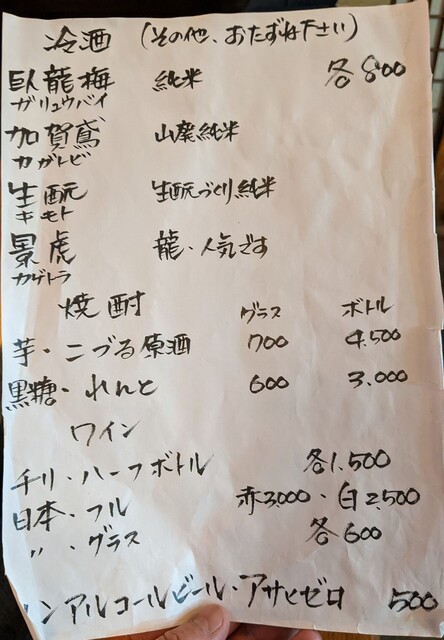 冷酒 (その他、おたずね下さい)
臥龍梅 純米 各800
ガリュウバイ
加賀鳶 山廃純米
カガトビ
生酛 生酛づくり純米
キモト
景虎 龍・人気です
カゲトラ
焼酎 グラス ボトル
芋・こづる原酒 700 4.500
黒糖・れんと 600 3.000
ワイン
チリ・ハーフボトル 各1.500
日本・フル 赤3000・白2,500
〃・グラス 各600
ノンアルコールビール・アサヒゼロ 500